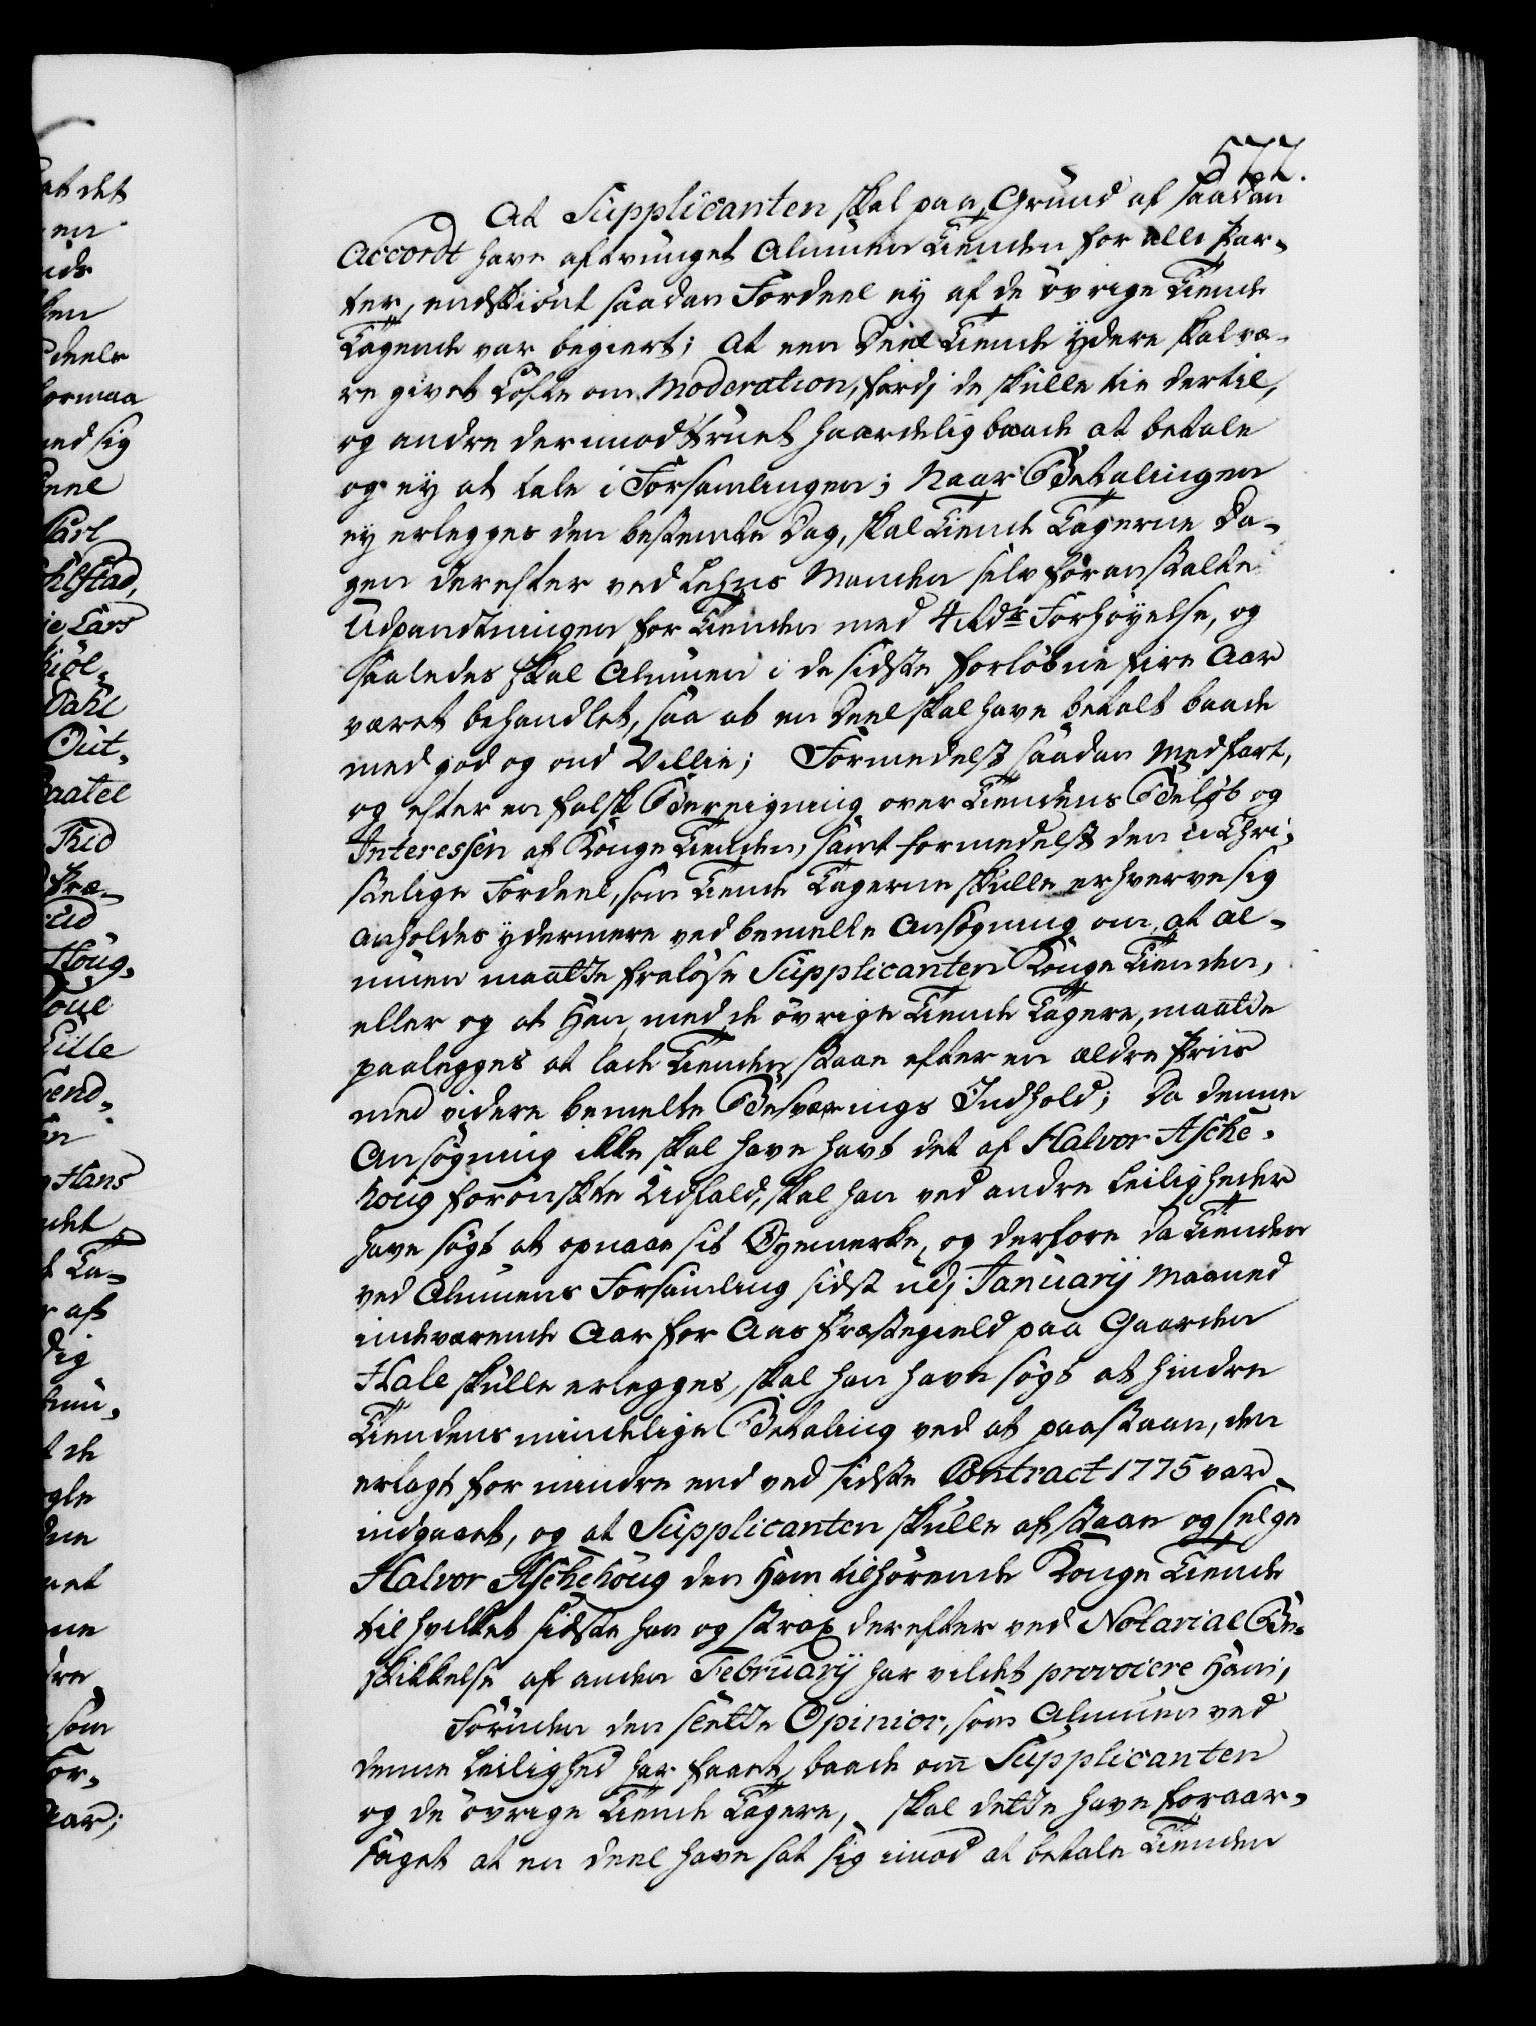 577.
At Supplicanten skal paa Grund af saadan
Accordt have aftvunget Almuen Tienden for alle Par-
ter, endskiönt saadan Fordeel ey af de övrige Tiende
Tagende var begiert; At een Deel Tiende ydere skal væ-
re givet Löfte om Moderation, fordj de skulle tie dertil,
og andre derimod truet haardelig baade at betale
og ey at tale i Forsamlingen; Naar Betalingen
ey erlegges den bestemte Dag, skal Tiende Tagerne Da-
gen derefter ved Lehns Manden selv foranstalte
Udpandtningen for Tienden med 4 Rdr Forhöyelse, og
saaledes skal Almuen i de sidste forlöbne fire Aar
været behandlet, saa at en Deel skal have betalt baade
med god og ond Villie; Formedelst saadan Medfart,
og efter en falsk Beregning over Tiendens Belöb og
Interessen af Konge Tienden, samt formedelst den u Chri-
stelige Fordeel, som Tiende Tagerne skulle erhverve sig
anholdes ydermere ved bemelte Ansögning om, at al-
muen maatte fralöse Supplicanten Konge Tienden,
eller og at Han, med de övrige Tiende Tagere, maatte
paalegges at lade Tienden staae efter en ældre Priis
med videre bemelte Besværings Indhold; Da denne
Ansögning ikke skal have havt det af Halvor Asche-
houg forönskte Udfald, skal han ved andre Leiligheder
have sögt at opnaae sit Öyemerke, og derfore da Tienden
ved Almuens Forsamling sidst udj Januarij Maaned
indeværende Aar for Aas Præstegield paa Gaarden
Hale skulle erlegges, skal han have sögt at hindre
Tiendens mindelige Betaling ved at paastaae, den
erlagt for mindre end ved sidste Contract 1775 var
indgaaet, og at Supplicanten skulle afstaae og selge
Halvor Aschehoug den Ham tilhörende Konge Tiende
til hvilket sidste han og strax derefter ved Notarial Be-
skikkelse af anden Februarij har vildet provocere Ham,
Foruden den slette Opinion, som Almuen ved
denne Leilighed har faaet, baade om Supplicanten
og de övrige Tiende Tagere, skal dette have foraar-
saget at en deel have sat sig imod at betale Tienden